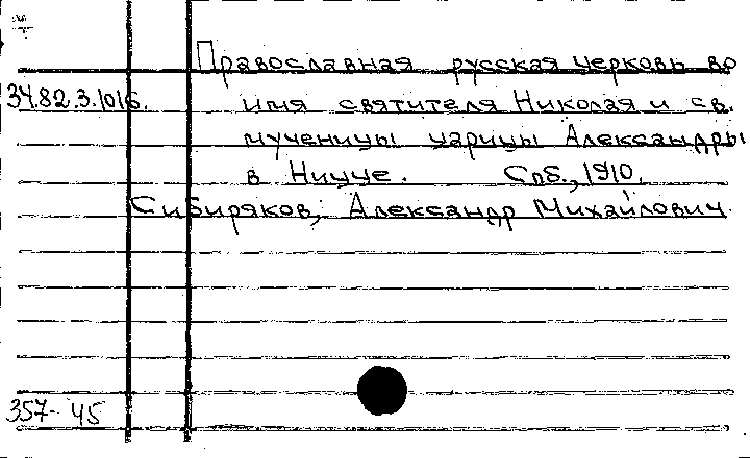 Православная русская церковь во
34.82.3.1016. имя святителя Николая и св.
мученицы царицы Александры
в Ницце. Спб., 1910.
Сибиряков, Александр Михайлович.
357-45